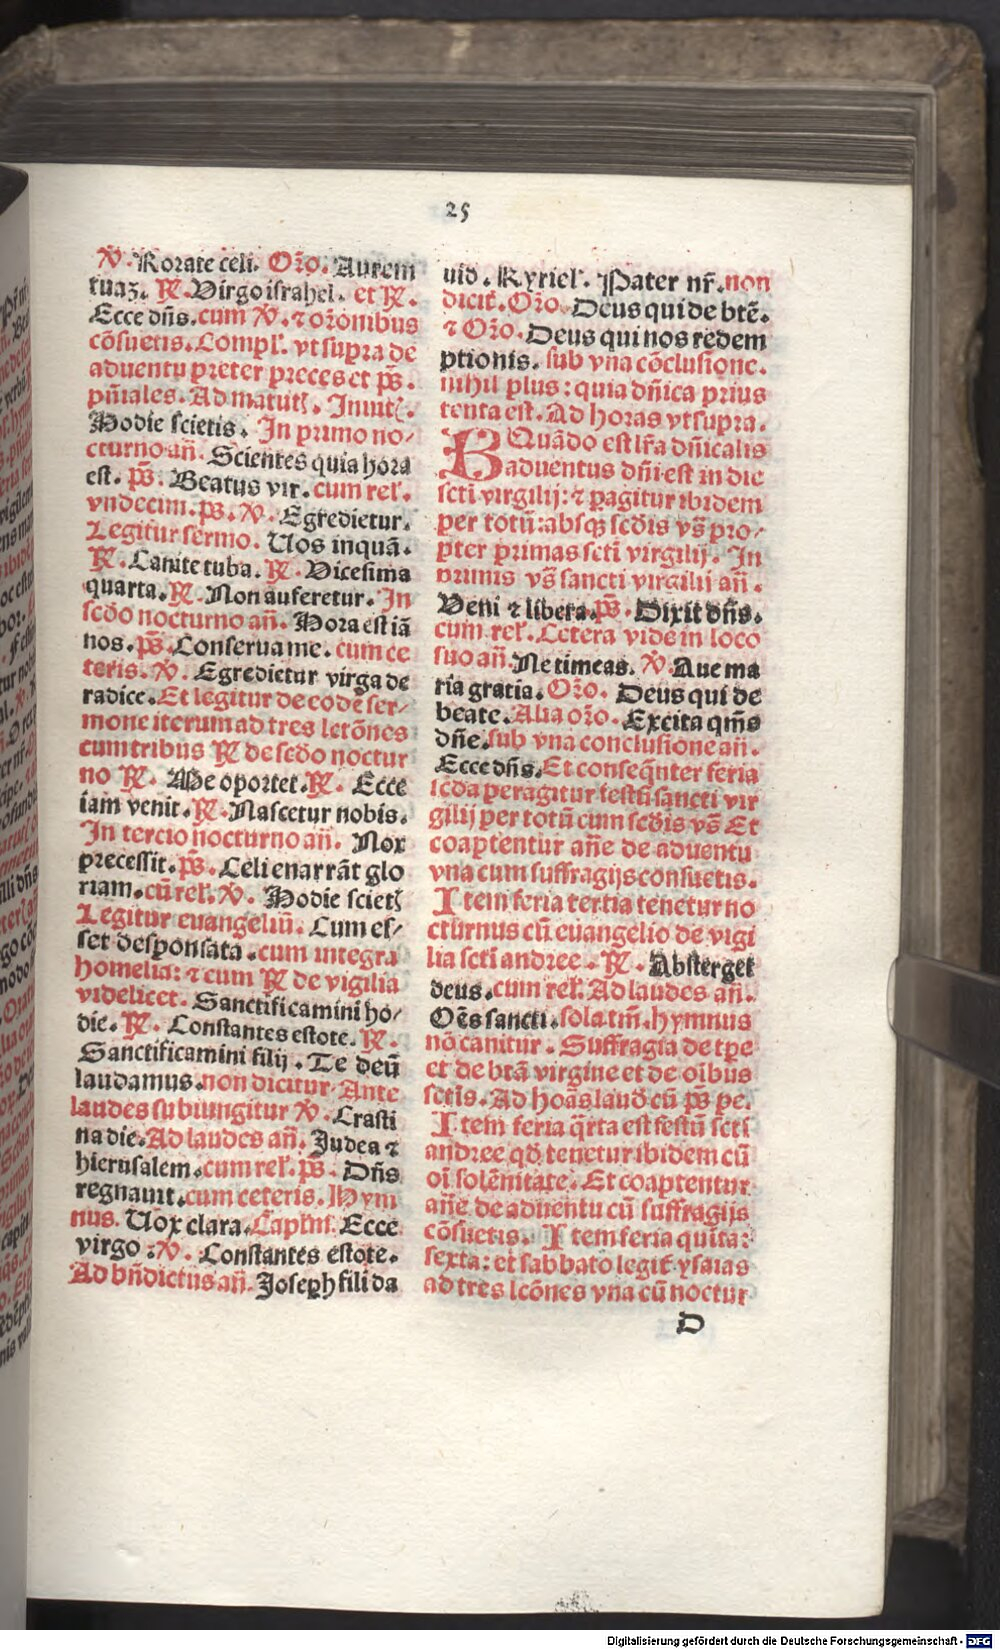 25
℣. Rorate celi. Oꝛ̃o. Aurem
tuaꝫ. ℟. Virgo israhel. et ℟.
Ecce dñs. cum ℣. ⁊ oꝛõnibus
cõsuetis. Compl'. vt supra de
aduentu preter preces et p̃s.
pñiales. Ad matuti. Inuit.
Hodie scietis. In primo no/
cturno añ. Scientes quia hora
est. p̃s. Beatus vir. cum rel'.
vndecim. p̃s. ℣. Egredietur.
Legitur sermo. Uos inquã.
℟. Canite tuba. ℟. Vicesima
quarta. ℟. Non auferetur. In
scďo nocturno añ. Hora est iã
nos. p̃s. Conserua me. cum ce
teris. ℣. Egredietur virga de
radice. Et legitur de eodẽ ser/
mone iterum ad tres lectõnes
cum tribus ℟ de scďo noctur
no ℟. Me oportet. ℟. Ecce
iam venit. ℟. Nascetur nobis.
In tercio nocturno añ. Nox
precessit. p̃s. Celi enarrãt glo
riam. cũ rel'. ℣. Hodie sciet
Legitur euangeliũ. Cum es/
set desponsata. cum integra
homelia: ⁊ cum ℟ de vigilia
videlicet. Sanctificamini ho/
die. ℟. Constantes estote. ℟.
Sanctificamini filij. Te deũ
laudamus. non dicitur Ante
laudes subiungitur ℣. Crasti
na die. Ad laudes añ. Judea ⁊
hierusalem. cum rel'. p̃s. Dñs
regnauit. cum ceteris. Hym
nus. Uox clara. Capl'm. Ecce
virgo: ℣. Constantes estote.
Ad bñdictus añ. Joseph fili da
uid. Kyriel'. Pater nr̃. non
dicit̃. Oꝛ̃o. Deus qui de btẽ.
⁊ Oꝛ̃o. Deus qui nos redem
ptionis. sub vna cõclusione.
nihil plus: quia dñica prius
tenta est. Ad horas vt supra.
B Quãdo est lr̃a dñicalis
aduentus dñi est in die
scti virgilij: ⁊ pagitur ibidem
per totũ: absqꝫ scďis vs̃ pro/
pter primas scti virgilij. In
primis vs̃ sancti virgilij añ.
Veni ⁊ libera. p̃s. Dixit dñs.
cum rel'. Cetera vide in loco
suo añ. Ne timeas. ℣. Aue ma
ria gratia. Oꝛ̃o. Deus qui de
beate. Alia oꝛ̃o. Excita qm̃s
dñe. sub vna conclusione añ.
Ecce dñs. Et conseq̃nter feria
scďa peragitur festũ sancti vir
gilij per totũ cum scďis vs̃ Et
coaptentur añe de aduentu
vna cum suffragijs consuetis.
Item feria tertia tenetur no
cturnus cũ euangelio de vigi
lia scti andree. ℟. Absterget
deus. cum rel'. Ad laudes añ.
Oẽs sancti. sola tm̃. hymnus
nõ canitur. Suffragia de tpe
et de btã virgine et de oĩbus
sctis. Ad hoãs laud cũ p̃s pe.
Item feria q̃rta est festũ scti
andree qď tenetur ibidem cũ
oĩ solẽnitate. Et coaptentur
añe de aduentu cũ suffragijs
cõsuetis. Item feria quita:
sexta: et sabbato legit̃ ysaias
ad tres lcõnes vna cũ noctur
D
Digitalisierung gefördert durch die Deutsche Forschungsgemeinschaft - DFG